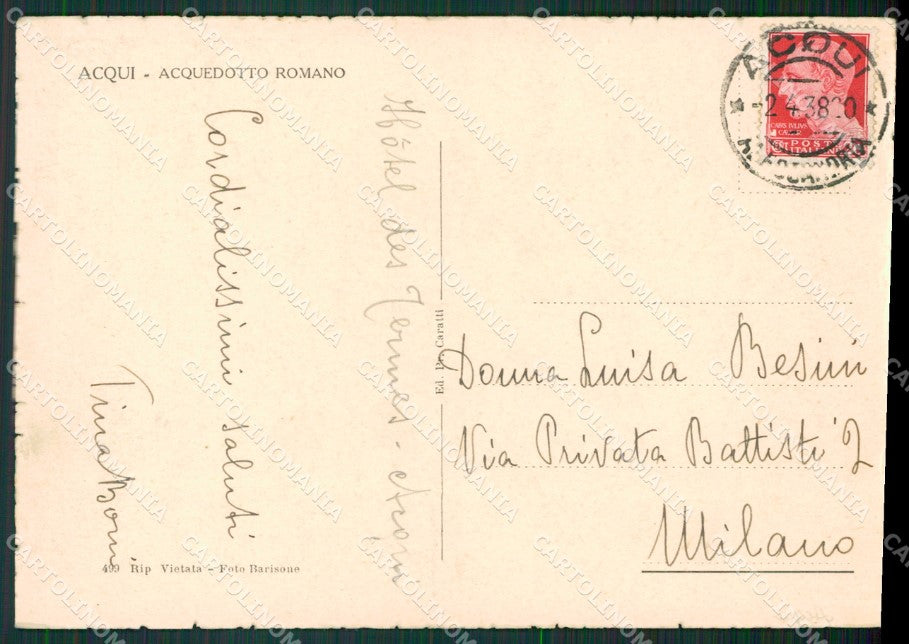 ACQUI - ACQUEDOTTO ROMANO
Cordialissimi saluti
Tina Boni
Hôtel des Termes - Acqui
499 Rip Vietata - Foto Barisone
Caratti
ACQUI
2 4 38 20
CAIUS IVLIVS
CAESAR
POSTE ITALIANE
Donna Luisa Besini
Via Privata Battisti 2
Milano
CARTOLINOMANIA